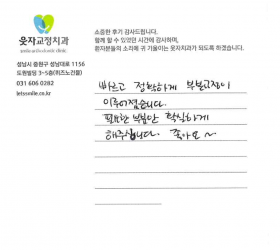 웃자교정치과
성남시 중원구 성남대로 1156
도원빌딩 3~5층(위즈노건물)
031 606 0282
letssmile.co.kr
소중한 후기 감사드립니다.
함께 할 수 있었던 시간에 감사하며,
환자분들의 소리에 귀 기울이는 웃자치과가 되도록 하겠습니다.
빠르고 정확하게 부분교정이
이루어졌습니다.
필요한 부분만 확실하게
해주십니다. 좋아요~